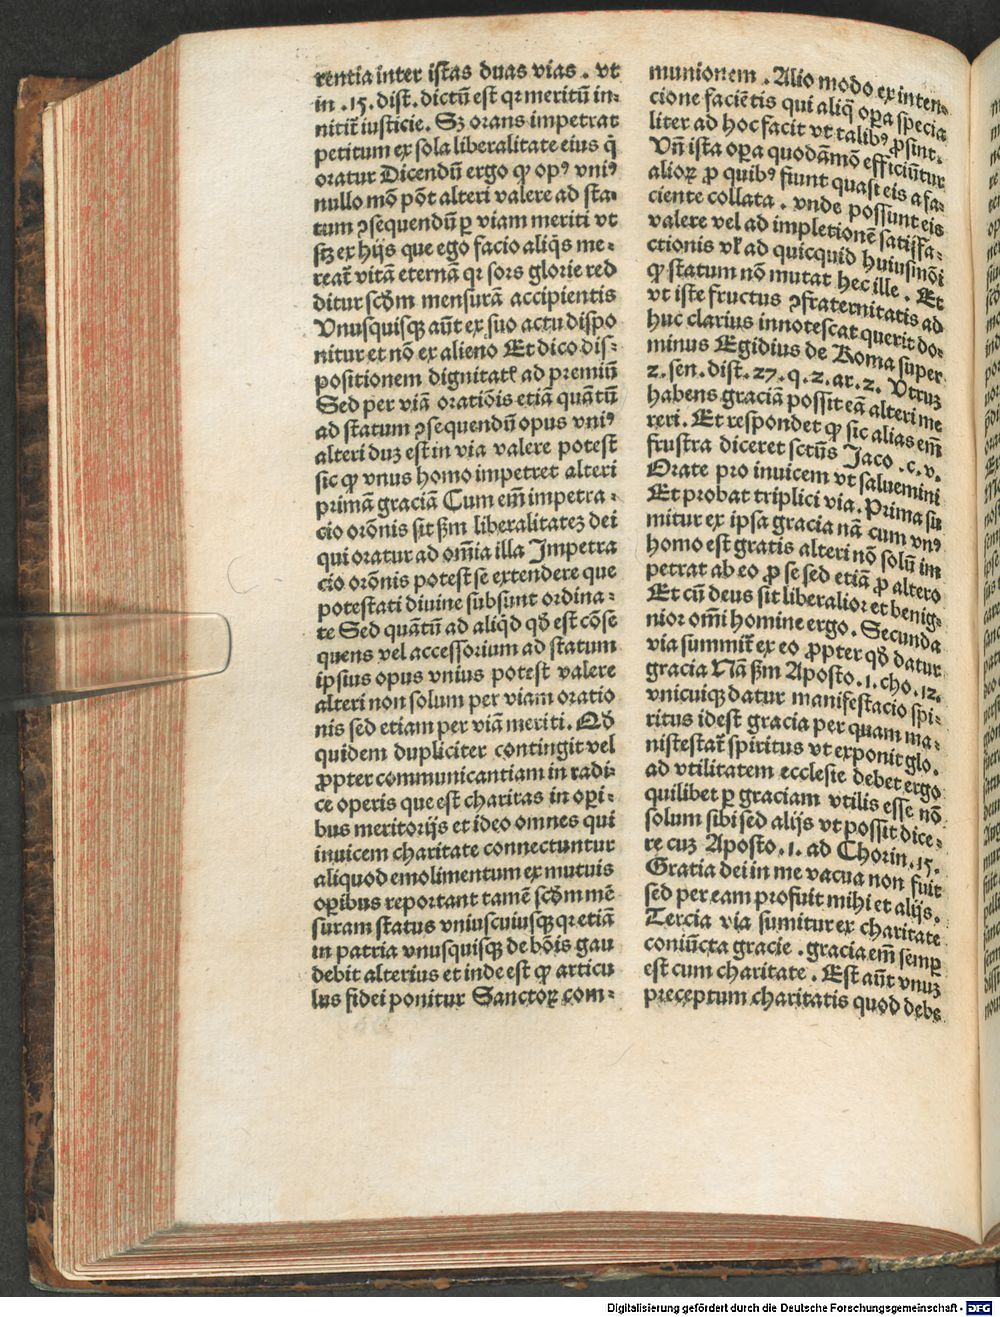 rentia inter istas duas vias . vt
in .15. dist. dictū est qꝛ meritū in⸗
nitit᷑ iusticie. Sꝫ orans impetrat
petitum ex sola liberalitate eius q̄
oratur Dicendū ergo ꝙ opꝰ vniꝰ
nullo mō pōt alteri valere ad sta⸗
tum ꝯsequendū ꝑ viam meriti vt
sꝫ ex hijs que ego facio aliq̄s me⸗
reat᷑ vitā eternā qꝛ sors glorie red
ditur scḋm mensurā accipientis
Vnusquisqꝫ aūt ex suo actu dispo
nitur et nō ex alieno Et dico dis⸗
positionem dignitatꝭ ad premiū
Sed per viā oratiōis etiā quātū
ad statum ꝯsequendū opus vniꝰ
alteri duꝫ est in via valere potest
sic ꝙ vnus homo impetret alteri
primā graciā Cum em̄ impetra⸗
cio orōnis sit s̄m liberalitateꝫ dei
qui oratur ad om̄ia illa Impetra
cio orōnis potest se extendere que
potestati diuine subsunt ordina⸗
te Sed quātū ad aliq̄d qḋ est cōse
quens vel accessorium ad statum
ipsius opus vnius potest valere
alteri non solum per viam oratio
nis sed etiam per viā meriti. Qḋ
quidem dupliciter contingit vel
ꝓpter communicantiam in radi⸗
ce operis que est charitas in oꝑi⸗
bus meritorijs et ideo omnes qui
inuicem charitate connectuntur
aliquod emolimentum ex mutuis
oꝑibus reportant tamē scḋm mē
suram status vniuscuiusqꝫ qꝛ etiā
in patria vnusquisqꝫ de bōis gau
debit alterius et inde est ꝙ articu
lus fidei ponitur Sanctoꝝ com⸗
munionem . Alio modo ex inten⸗
cione faciētis qui aliq̄ oꝑa specia
liter ad hoc facit vt talibꝰ ꝓsint.
Vn̄ ista oꝑa quodāmō efficiūtur
alioꝝ ꝓ quibꝰ fiunt quasi eis a fa⸗
ciente collata . vnde possunt eis
valere vel ad impletionē satisfa⸗
ctionis vꝉ ad quicquid huiusmōi
ꝙ statum nō mutat hec ille . Et
vt iste fructus ꝯfraternitatis ad
huc clarius innotescat querit do⸗
minus Egidius de Roma super
2. sen. dist. 27. q. 2. ar. 2. Vtruꝫ
habens graciā possit eā alteri me
reri. Et respondet ꝙ sic alias em̄
frustra diceret sctūs Jaco . c. v.
Orate pro inuicem vt saluemini
Et probat triplici via. Prima su
mitur ex ipsa gracia nā cum vnꝰ
homo est gratis alteri nō solū im
petrat ab eo ꝓ se sed etiā ꝓ altero
Et cū deus sit liberalior et benig⸗
nior om̄i homine ergo. Secunda
via summit᷑ ex eo ꝓpter qḋ datur
gracia Nā s̄m Aposto. 1. cho. 12.
vnicuiqꝫ datur manifestacio spi⸗
ritus idest gracia per quam ma⸗
nistestat᷑ spiritus vt exponit glo.
ad vtilitatem ecclesie debet ergo
quilibet ꝑ graciam vtilis esse nō
solum sibi sed alijs vt possit dice⸗
re cuꝫ Aposto. 1. ad Chorin. 15.
Gratia dei in me vacua non fuit
sed per eam profuit mihi et alijs.
Tercia via sumitur ex charitate
coniūcta gracie . gracia em̄ semꝑ
est cum charitate . Est aūt vnuꝫ
preceptum charitatis quod debe
Digitalisierung gefördert durch die Deutsche Forschungsgemeinschaft - DFG